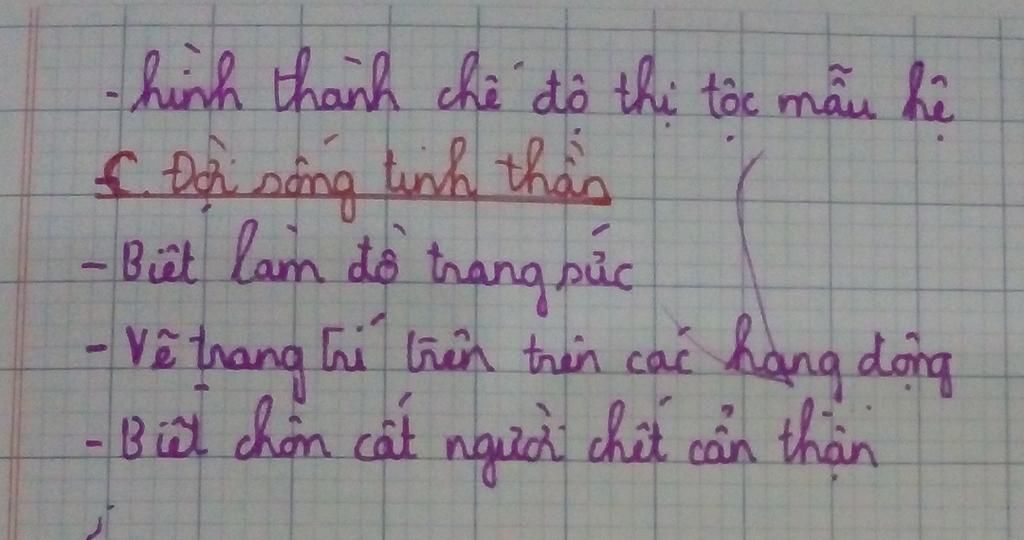 - hình thành chế độ thị tộc mẫu hệ
c. Đời sống tinh thần
- Biết làm đồ trang sức
- Vẽ trang trí trên trên các hang động
- Biết chôn cất người chết cẩn thận